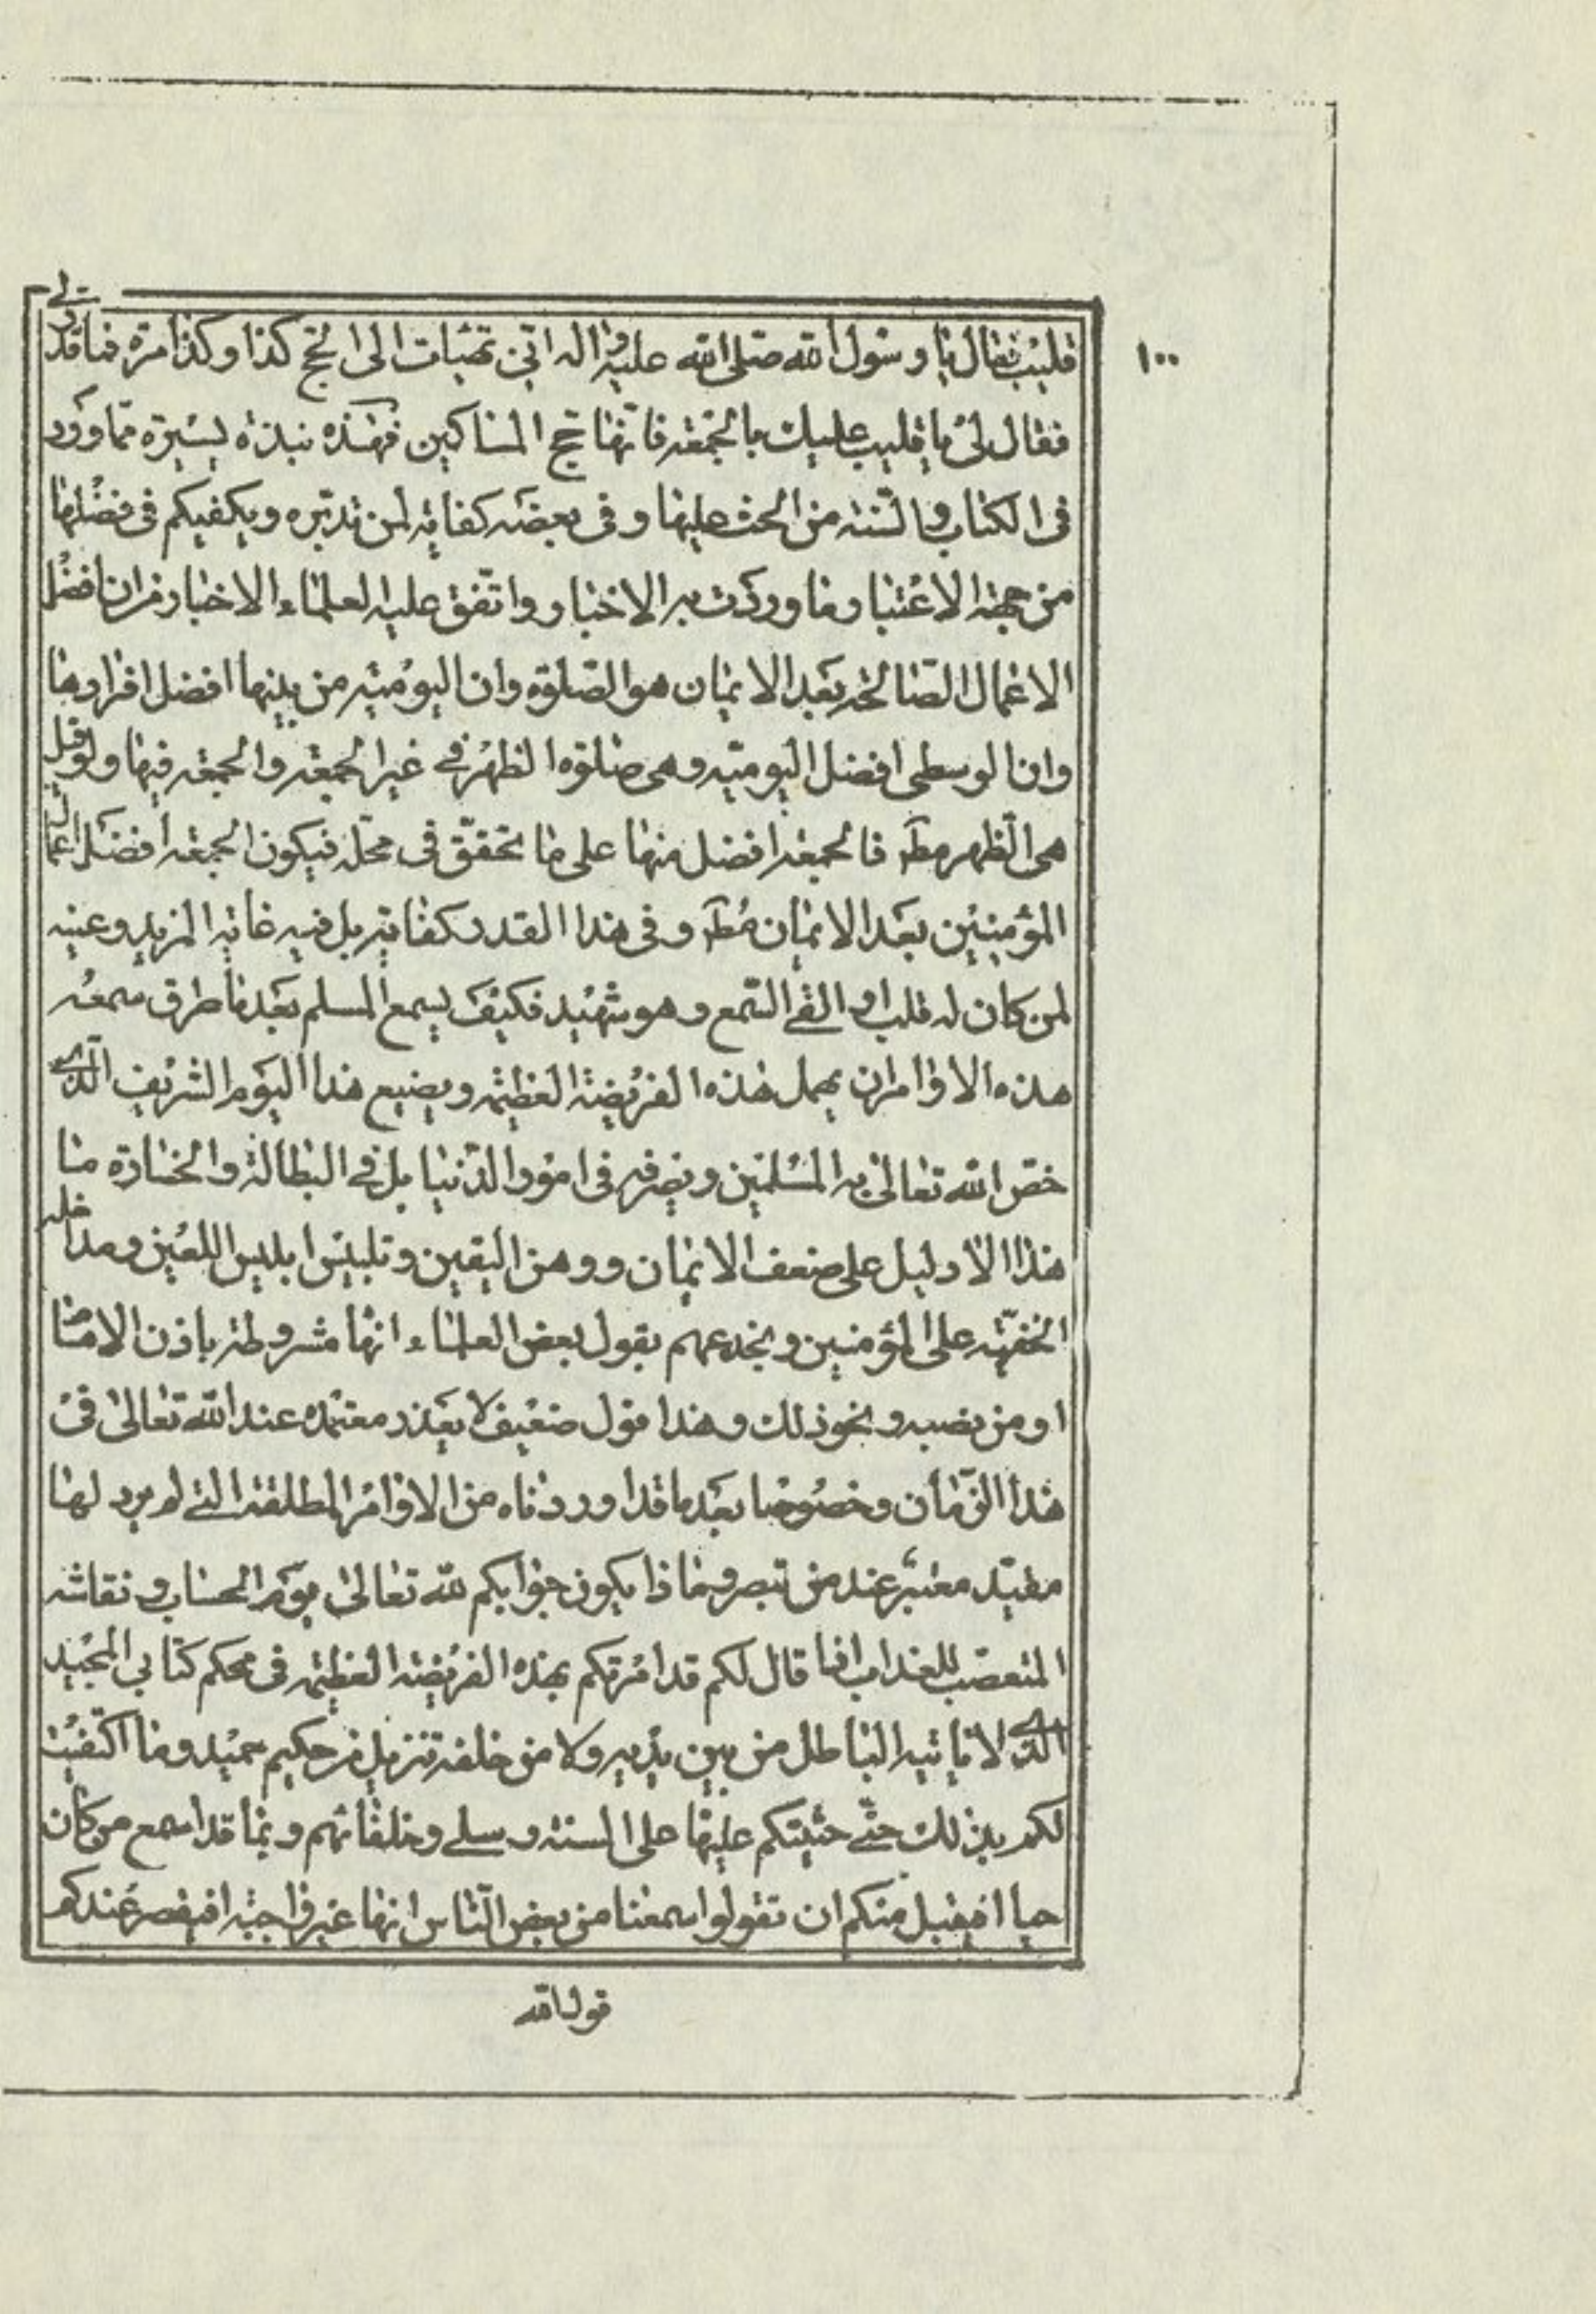 ۱۰۰
قليب فقال يا رسول الله صلى الله عليه واله انى تهيأت الى الحج كذا وكذا مرة فما قدر لى
فقال لى يا قليب عليك بالجمعة فانها حج المساكين فهذه نبذة يسيرة مما ورد
فى الكتاب والسنة من الحث عليها وفى بعضه كفاية لمن تدبره ويكفيكم فى فضلها
من جهة الاعتبار وما وردت به الاخبار واتفق عليه العلماء الاخيار من ان افضل
الاعمال الصالحة بعد الايمان هو الصلوة وان اليومية من بينها افضل افرادها
وان الوسطى افضل اليومية وهى صلوة الظهر فى غير الجمعة والجمعة فيها ولو قيل
هى الظهر مطه فالجمعة افضل منها على ما تحقق فى محله فيكون الجمعة افضل اعمال
المؤمنين بعد الايمان مطه وفى هذا القدر كفاية بل فيه غاية المزيد وعنيه
لمن كان له قلب او القى السمع وهو شهيد فكيف يسمع المسلم بعد ما طرق سمعه
هذه الاوامر ان يهمل هذه الفريضة العظيمة ويضيع هذا اليوم الشريف الذى
خص الله تعالى به المسلمين ويصرفه فى امور الدنيا بل فى البطالة والخسارة ما
هذا الا دليل على ضعف الايمان ووهن اليقين وتلبيس ابليس اللعين ومداخله
الخفية على المؤمنين ويخدعهم بقول بعض العلماء انها مشروطة باذن الامام
او من نصبه ونحو ذلك وهذا قول ضعيف لا يعذر معتمده عند الله تعالى فى
هذا الزمان وخصوصا بعد ما قد اوردناه من الاوامر المطلقة التى لم يرد لها
مقيد معتبر عند من تبصر وبماذا يكون جوابكم لله تعالى يوم الحساب و نقاشه
المتعصب للعذاب اذا قال لكم قد امرتكم بهذه الفريضة العظيمة فى محكم كتابى المجيد
الذى لا ياتيه الباطل من بين يديه ولا من خلفه تنزيل من حكيم حميد وما اكتفيت
لكم بذلك حتى حثيتكم عليها على السنة رسلى وخلفائهم وبما قد اسمع من كان
حيا افيقبل منكم ان تقولوا سمعنا من بعض الناس انها غير واجبة افيقصر عندكم
قول الله